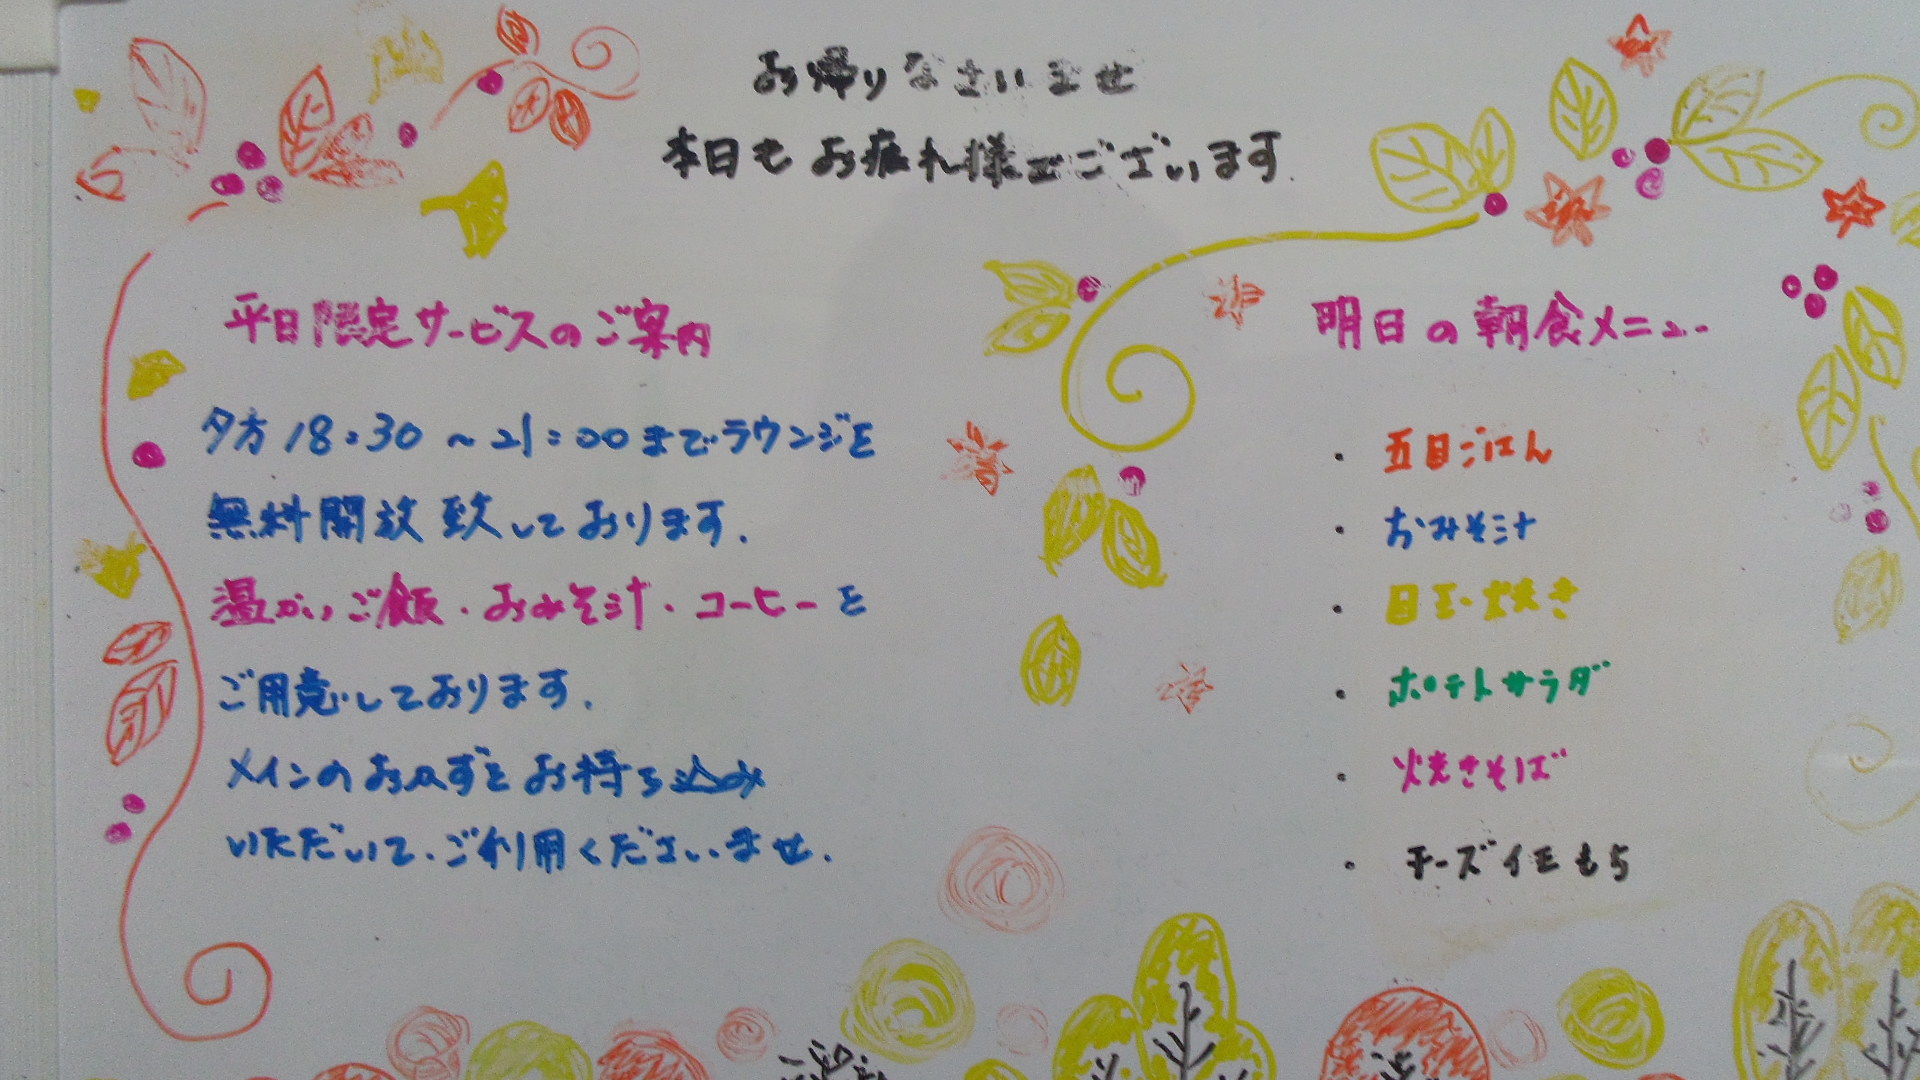 お帰りなさいませ
本日もお疲れ様でございます
平日限定サービスのご案内
夕方18:30～21:00までラウンジを
無料開放致しております.
温かいご飯・おみそ汁・コーヒーを
ご用意しております.
メインのおかずをお持ち込み
いただいて、ご利用くださいませ.
明日の朝食メニュー
・五目ごはん
・おみそ汁
・目玉焼き
・ポテトサラダ
・焼きそば
・チーズイモもち